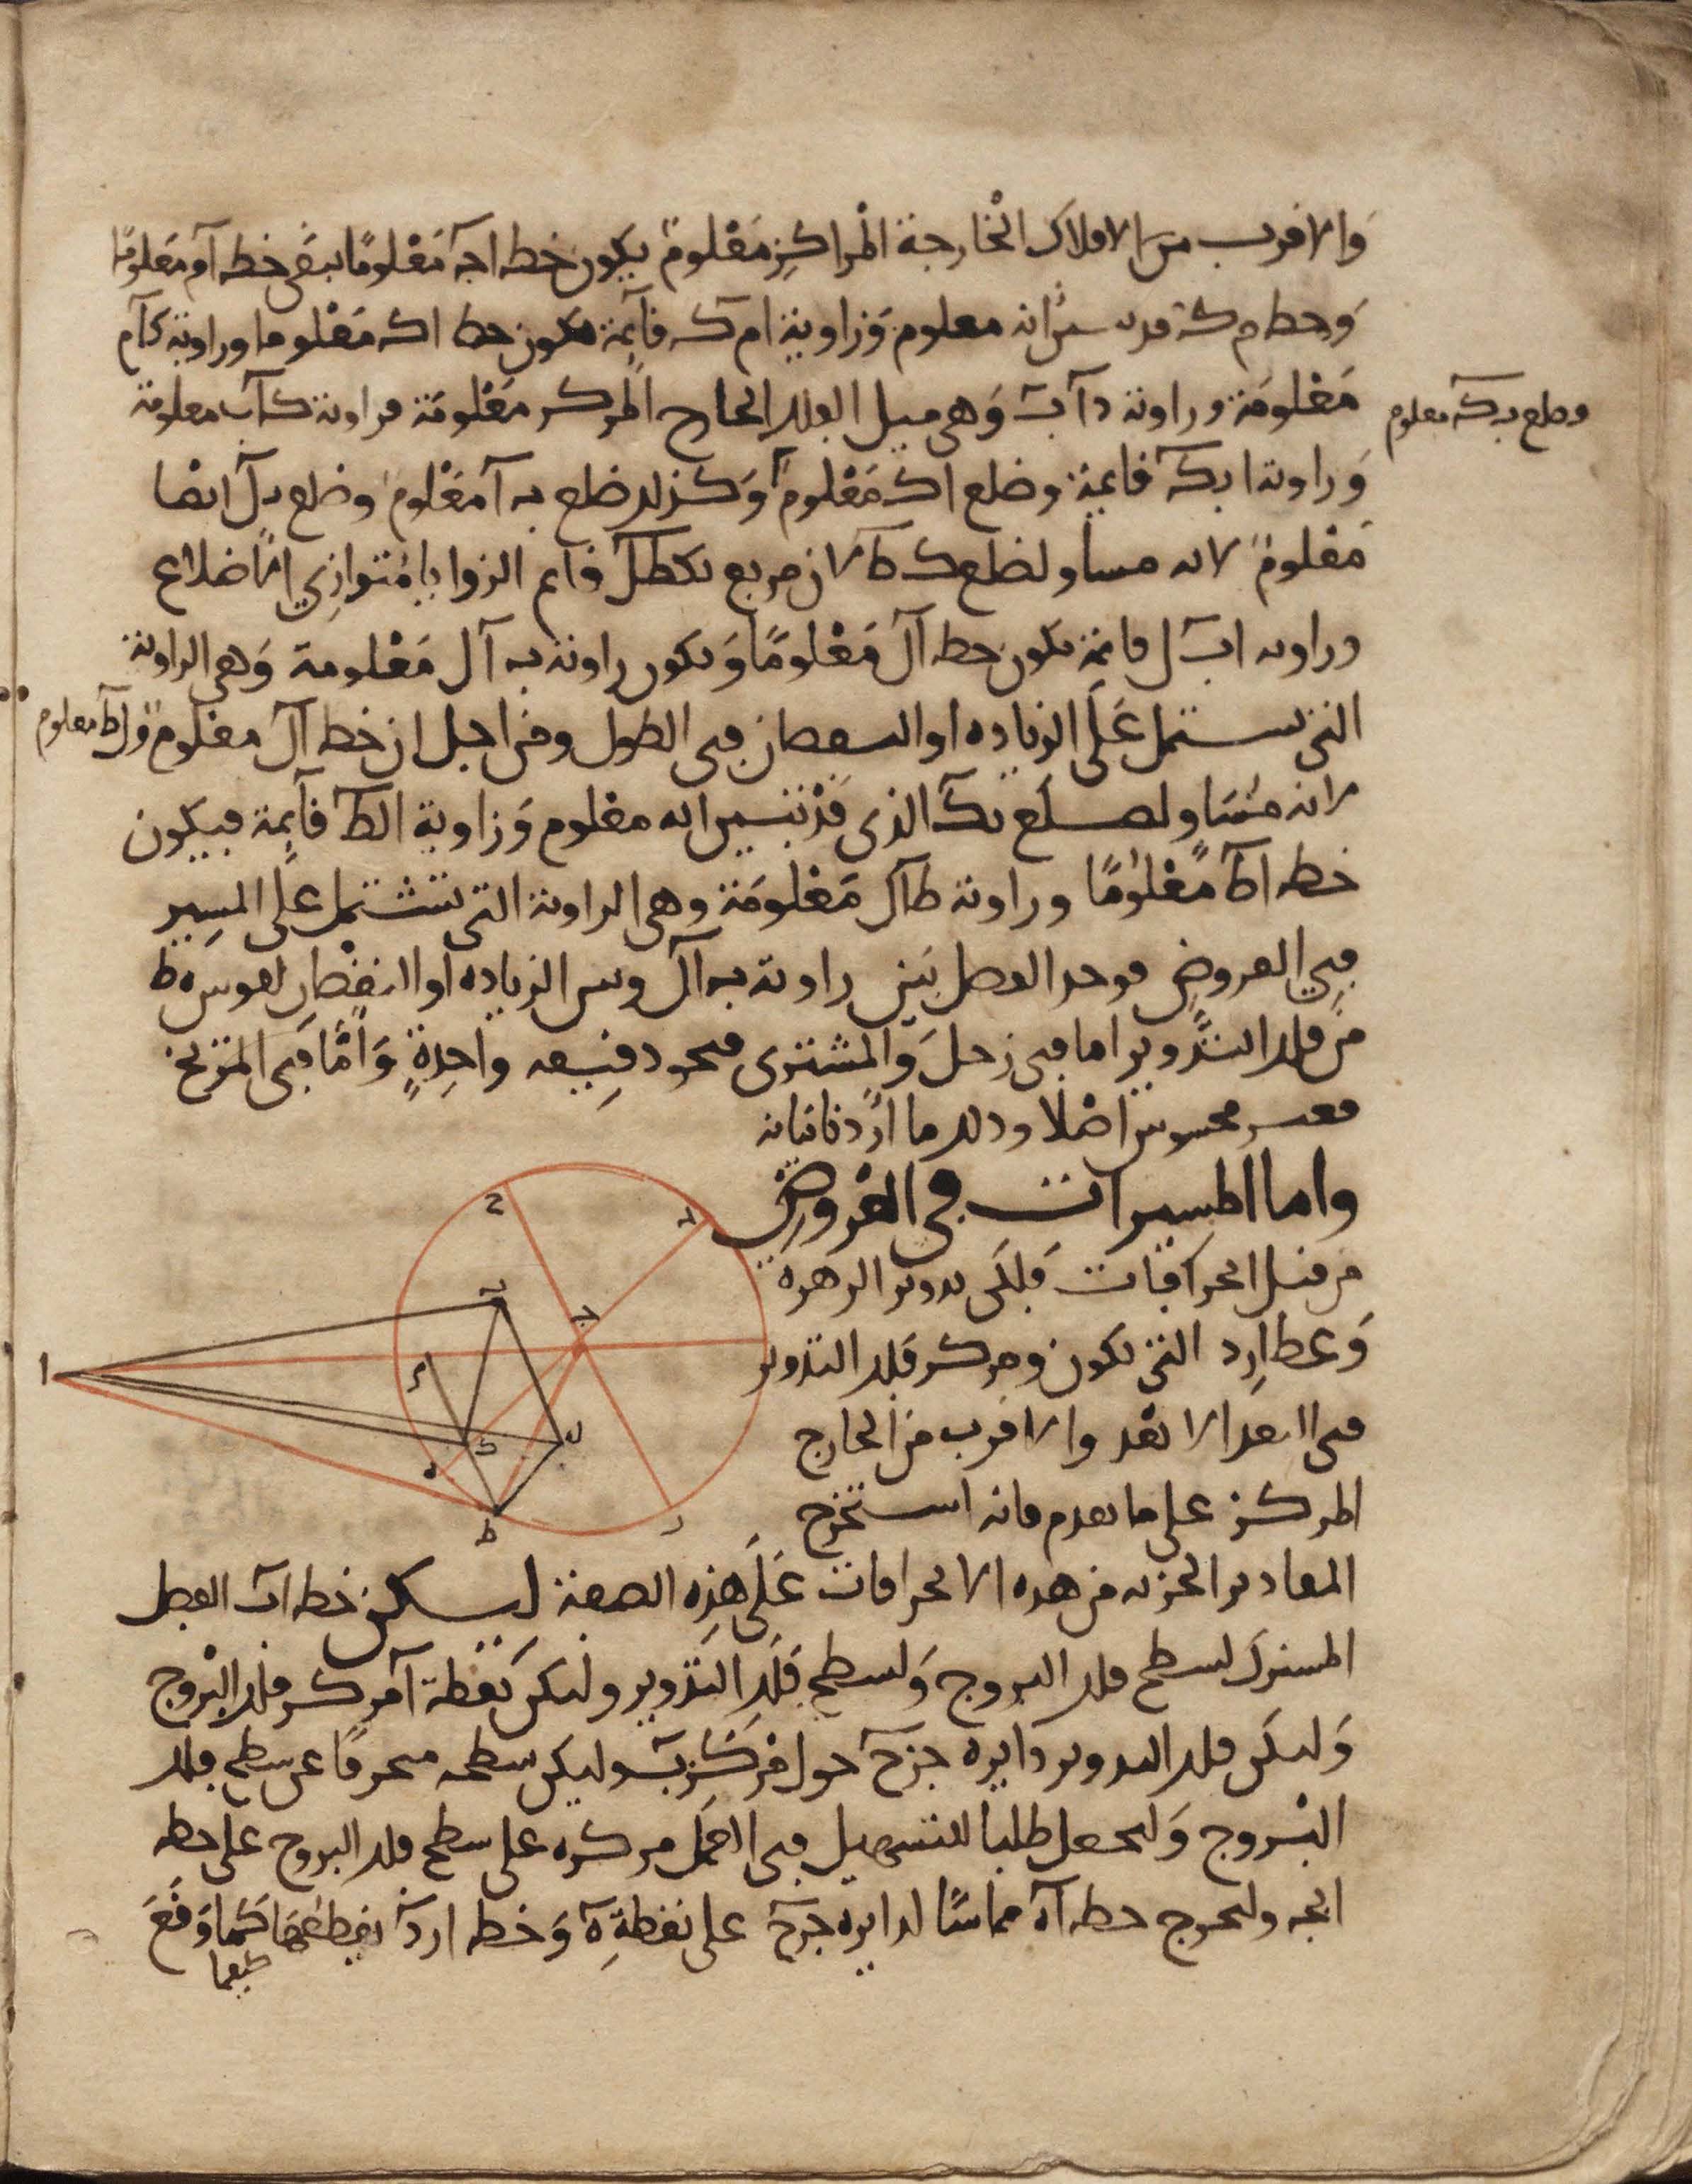 والاقرب من الافلاك الخارجة المراكز معلوم يكون خطه اجه معلوما يبقى خطه آم معلوما
وخط م كـ قد تبين انه معلوم وزاوية ام كـ قآيمة فيكون خط اكـ معلوما وزاوية كآم
معلومة وزاوية دآب وهي ميل الفلك الخارج المركز معلومة فزاوية كآب معلومة
وضلع بكـ معلوم
وزاوية ابكـ قايمة وضلع اكـ معلوم وكذلك ضلع بـ آ معلوم وضلع بل ايضا
معلوم لانه مساو لضلع كـ ط لان مربع بكطل قايم الزوايا متوازي الاضلاع
وزاوية ابـ ل قايمة يكون خط آل معلوما وتكون زاوية بـ آل معلومة وهي الزاوية
التي تشتمل على الزياده او النقصان في الطول ومن اجل ان خط آل معلوم ول ط معلوم
لانه مساو لضلع بكـ الذي قد تبين انه معلوم وزاوية الط قآيمة فيكون
خطه اط معلوما وزاوية طآل معلومة وهي الزاوية التي تشتمل على المسير
في العروض فوجد الفصل بين زاوية بـ آل وبين الزياده او النقصان لقوس ه ط
من فلك التدوير اما في زحل والمشتري فنحو دقيقه واحدة واما في المريخ
فغير محسوس اصلا وذلك ما اردنا بيانه
واما المسيرات في العروض
من قبل انحرافات فلكي تدوير الزهره
وعطارد التي تكون ومركز فلك التدوير
في البعد الابعد والاقرب من الخارج
المركز على ما تقدم فانه استخرج
المقادير الجزيه من هذه الانحرافات على هذه الصفة ليكن خطه اب الفصل
المشترك لسطح فلك البروج ولسطح فلك التدوير وليكن نقطة آ مركز فلك البروج
وليكن فلك التدوير دايره جزح حول مركز ب وليكن سطحه منحرفا عن سطح فلك
البروج وليجعل طلبا للتسهيل في العمل مركزه على سطح فلك البروج على خطه
ابجه وليخرج خطه آه مماسا لدايره جزح على نقطة ه وخطه ارد يقطعها كما وقع